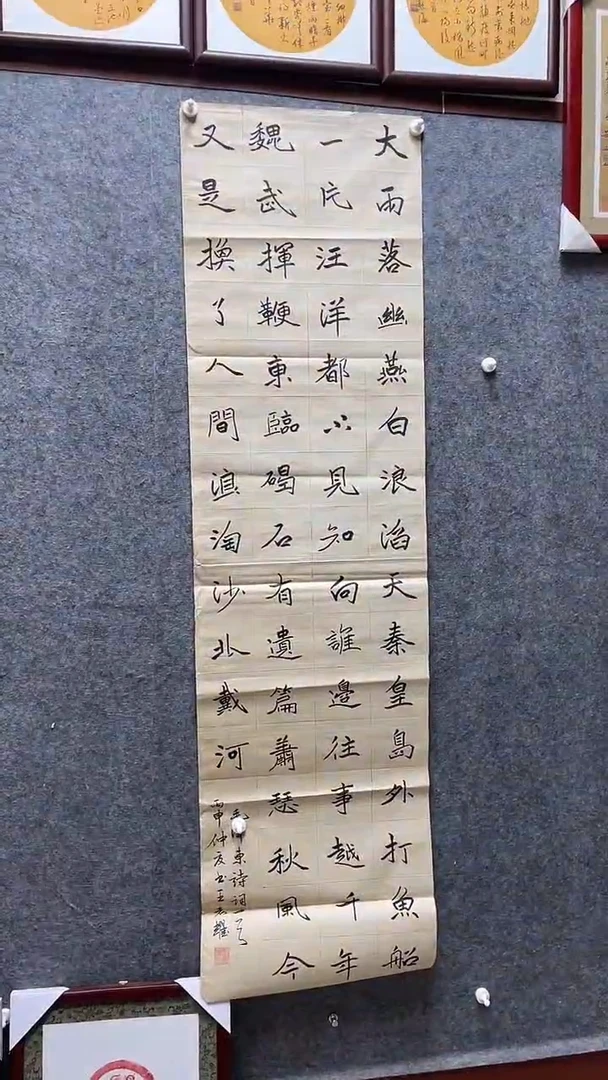 大雨落幽燕白浪滔天秦皇島外打魚船
一片汪洋都不見知向誰邊往事越千年
魏武揮鞭東臨碣石有遺篇蕭瑟秋風今
又是換了人間滇淘沙北戴河
東詩詞一首
丙申仲夏书王